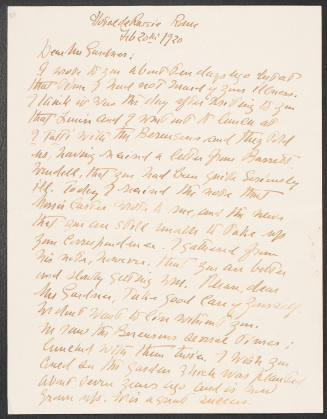 Hotel de Russie Rome
Feb 20th 1920
Dear Mrs Gardner:
I wrote to you about ten days ago but at
that time I had not heard of your illness.
I think it was the day after writing to you
that Louise and I went out to lunch at
I Tatti with the Berensons and they told
us, having received a letter from Barrett
Wendell, that you had been quite seriously
ill. Today I received the note that
Morris Carter wrote to me, and the news
that you are still unable to take up
your correspondence. I gathered from
his note, however, that you are better
and slowly getting well. Please, dear
Mrs Gardner, take good care of yourself.
We don't want to live without you.
We saw the Berensons several times;
lunched with them twice. I wish you
could see the garden which was planted
about seven years ago and is now
grown up. It is a great success